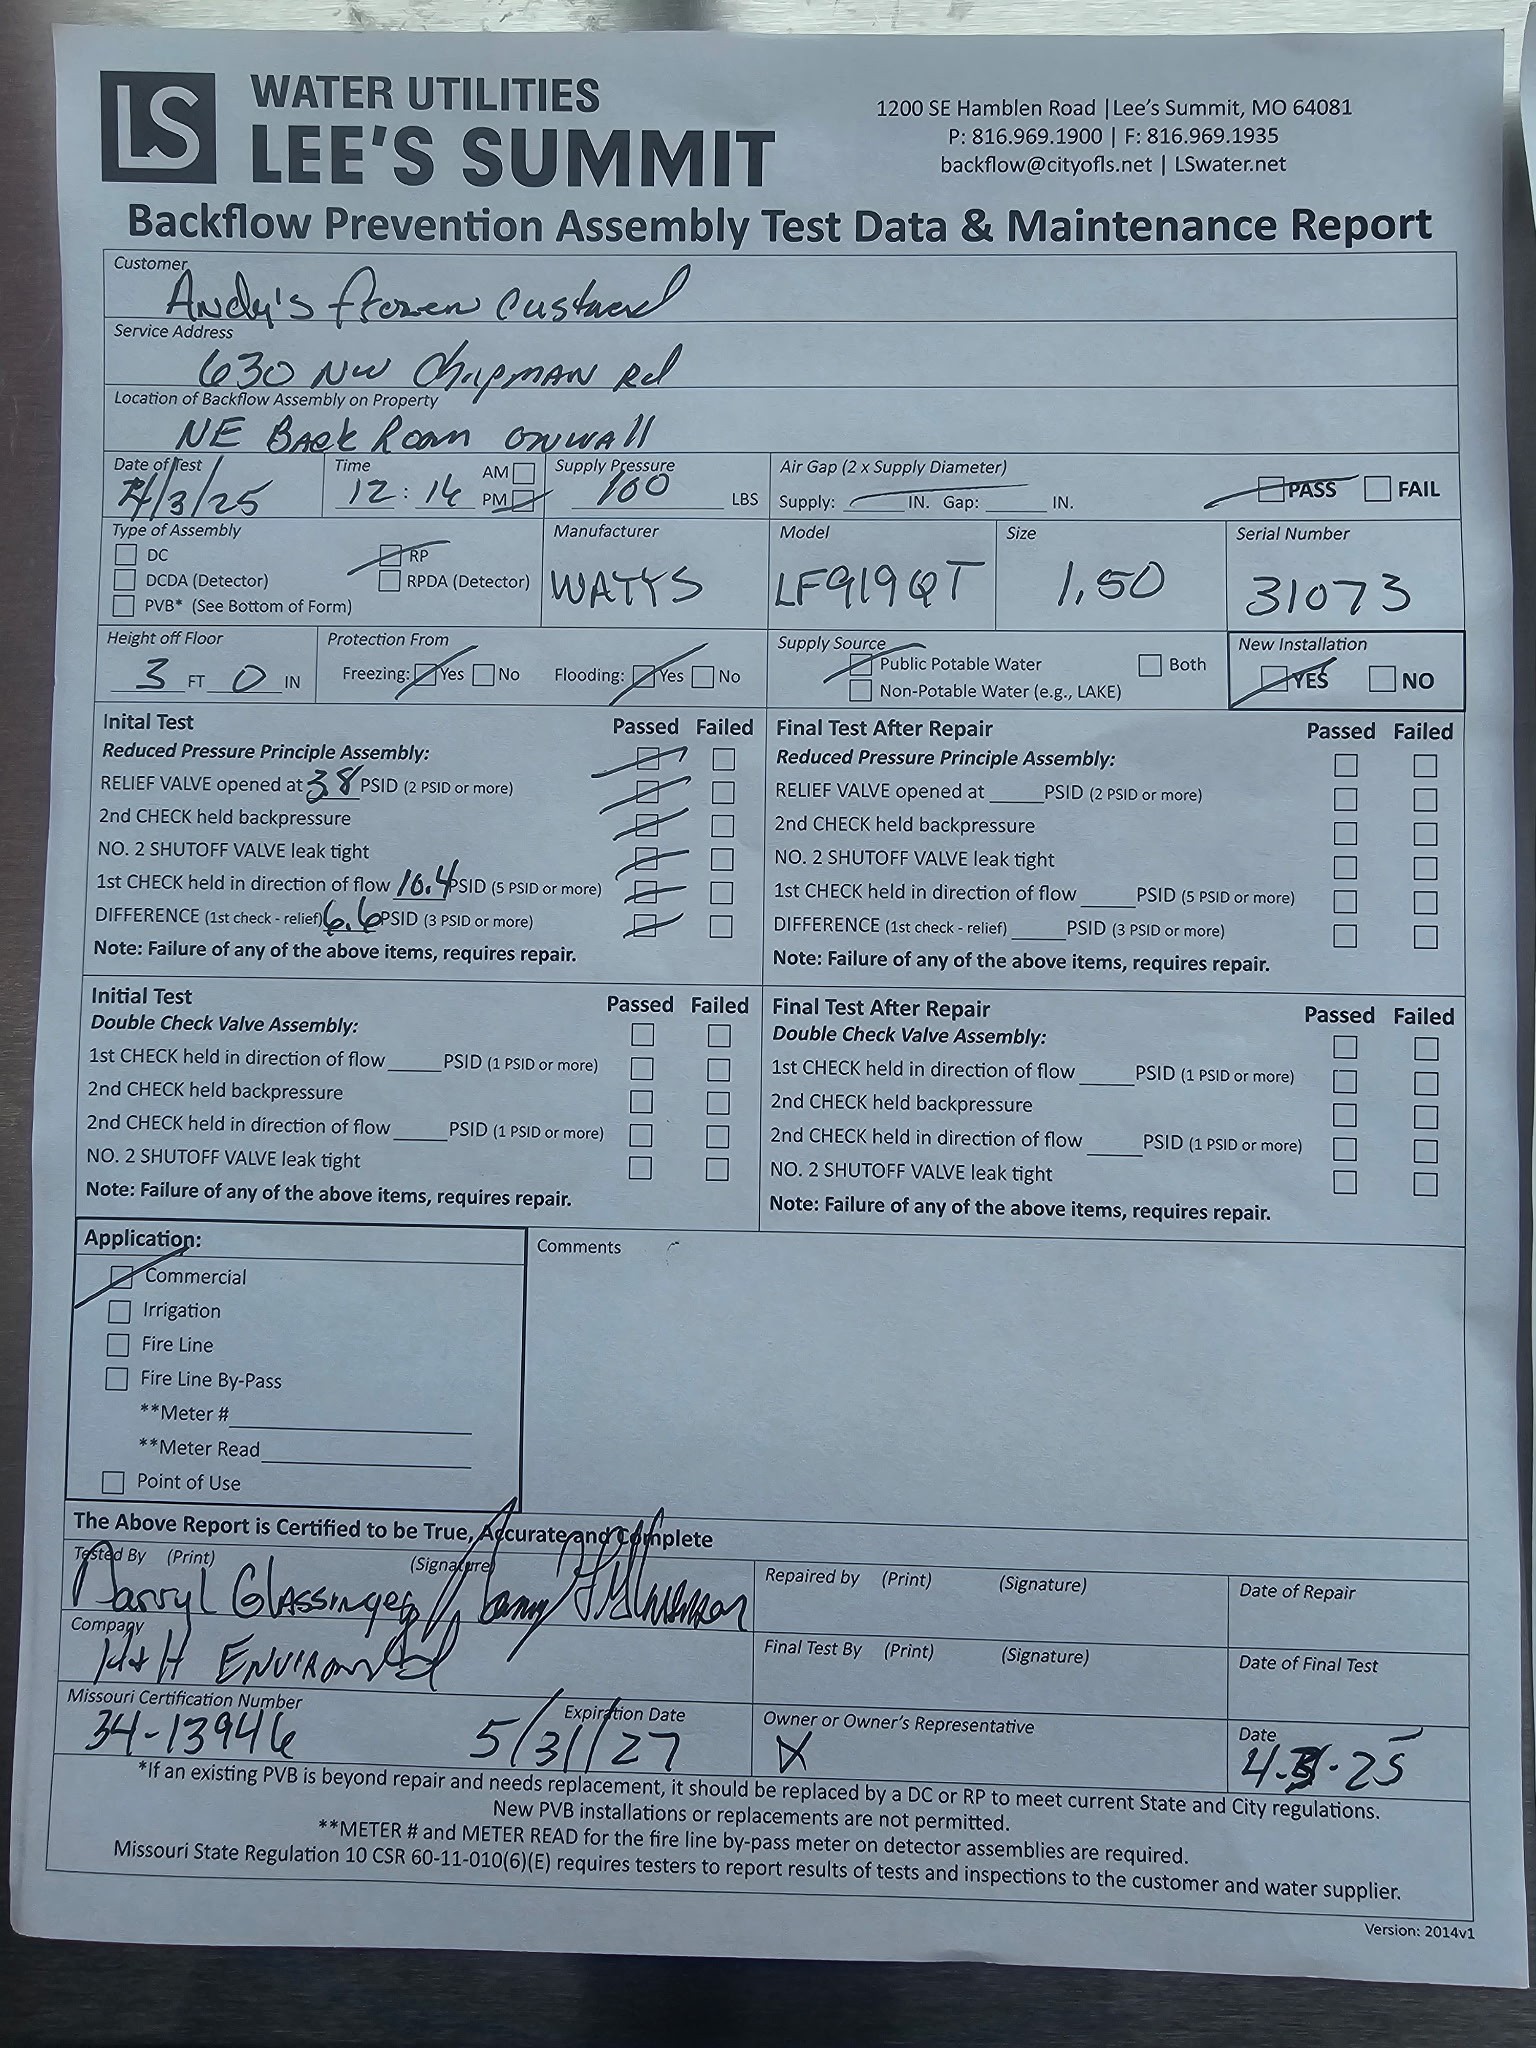 LS
WATER UTILITIES
LEE'S SUMMIT
1200 SE Hamblen Road | Lee's Summit, MO 64081
P: 816.969.1900 | F: 816.969.1935
backflow@cityofls.net | LSwater.net
Backflow Prevention Assembly Test Data & Maintenance Report
Customer
Andy's frozen Custard
Service Address
630 NW Chipman Rd
Location of Backflow Assembly on Property
NE Back Room on wall
Date of Test Time AM PM Supply Pressure Air Gap (2 x Supply Diameter)
4/3/25 12:14 100 LBS Supply: IN. Gap: IN. PASS FAIL
Type of Assembly Manufacturer Model Size Serial Number
DC RP
DCDA (Detector) RPDA (Detector) WATTS LF919QT 1.50 31073
PVB* (See Bottom of Form)
Height off Floor Protection From Supply Source New Installation
3 FT 0 IN Freezing: Yes No Flooding: Yes No Public Potable Water Both YES NO
Non-Potable Water (e.g., LAKE)
Inital Test Passed Failed
Reduced Pressure Principle Assembly:
RELIEF VALVE opened at 3.8 PSID (2 PSID or more)
2nd CHECK held backpressure
NO. 2 SHUTOFF VALVE leak tight
1st CHECK held in direction of flow 10.4 PSID (5 PSID or more)
DIFFERENCE (1st check - relief) 6.6 PSID (3 PSID or more)
Note: Failure of any of the above items, requires repair.
Final Test After Repair Passed Failed
Reduced Pressure Principle Assembly:
RELIEF VALVE opened at PSID (2 PSID or more)
2nd CHECK held backpressure
NO. 2 SHUTOFF VALVE leak tight
1st CHECK held in direction of flow PSID (5 PSID or more)
DIFFERENCE (1st check - relief) PSID (3 PSID or more)
Note: Failure of any of the above items, requires repair.
Initial Test Passed Failed
Double Check Valve Assembly:
1st CHECK held in direction of flow PSID (1 PSID or more)
2nd CHECK held backpressure
2nd CHECK held in direction of flow PSID (1 PSID or more)
NO. 2 SHUTOFF VALVE leak tight
Note: Failure of any of the above items, requires repair.
Final Test After Repair Passed Failed
Double Check Valve Assembly:
1st CHECK held in direction of flow PSID (1 PSID or more)
2nd CHECK held backpressure
2nd CHECK held in direction of flow PSID (1 PSID or more)
NO. 2 SHUTOFF VALVE leak tight
Note: Failure of any of the above items, requires repair.
Application:
Commercial
Irrigation
Fire Line
Fire Line By-Pass
**Meter #
**Meter Read
Point of Use
Comments
The Above Report is Certified to be True, Accurate and Complete
Tested By (Print) (Signature)
Darryl Glassinger
Repaired by (Print) (Signature) Date of Repair
Company
H & H
Final Test By (Print) (Signature) Date of Final Test
Missouri Certification Number Expiration Date
34-13946 5/31/27
Owner or Owner's Representative Date
X 4.3.25
*If an existing PVB is beyond repair and needs replacement, it should be replaced by a DC or RP to meet current State and City regulations.
New PVB installations or replacements are not permitted.
**METER # and METER READ for the fire line by-pass meter on detector assemblies are required.
Missouri State Regulation 10 CSR 60-11-010(6)(E) requires testers to report results of tests and inspections to the customer and water supplier.
Version: 2014v1